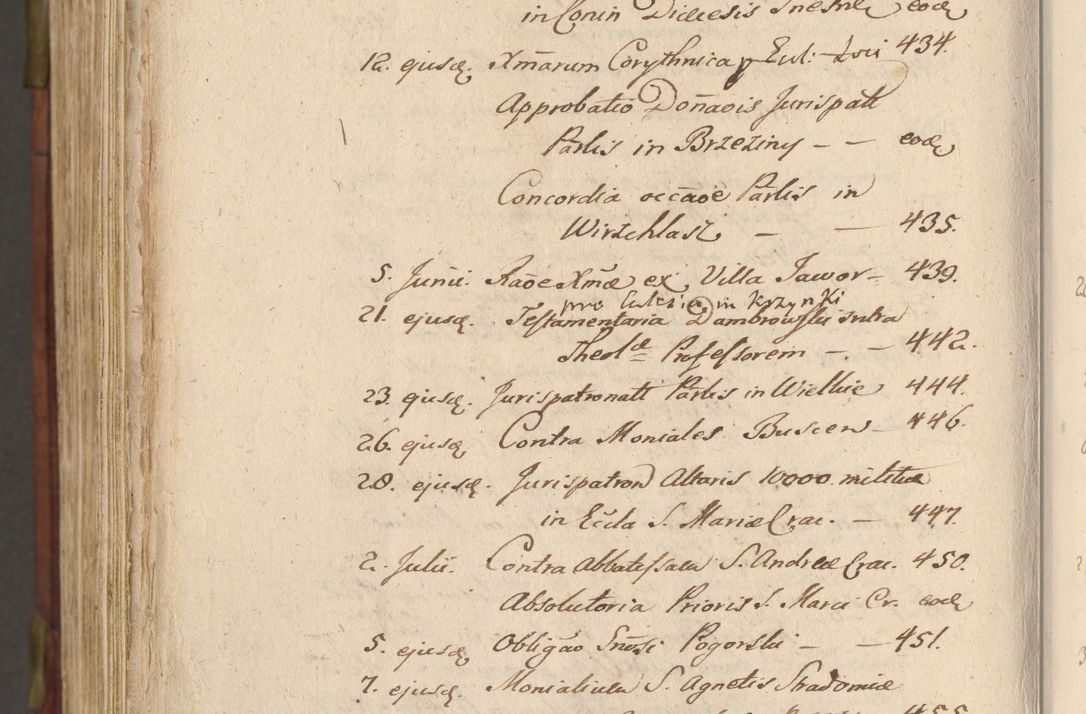 in Conin Diœcesis Gnesne eodę
12. ejusdę. Xm̄arum Corythnica p Eul: Łoci 434.
Approbatio Don̄aõis Jurispatt
Parlis in Brzeziny – – eodę
Concordia occaõe Parlis in
Wirzchlasz – – 435.
5. Junii. Raõe Xm̄æ ex Villa Jawor – 439.
pro Eccle in Krzynki
21. ejusdę. Testamentaria Dambrowski intra
Theolæ Professorem –. – 442.
23. ejusdę. Jurispatronatt Parlis in Wielkie 444.
26. ejusdę Contra Moniales Buscen – 446.
28. ejusdę. Jurispatron Altaris 10000 militū
in Eccla S. Mariæ Crac. – 447.
2. Julii. Contra Abbatissam S. Andreæ Crac. 450.
Absolutoria Prioris S. Marci Cr. eodę
5. ejusdę Obligāo Gn̄osi Pogorski – – 451.
7. ejusdę. Monialium S. Agnetis Stradomiæ
455